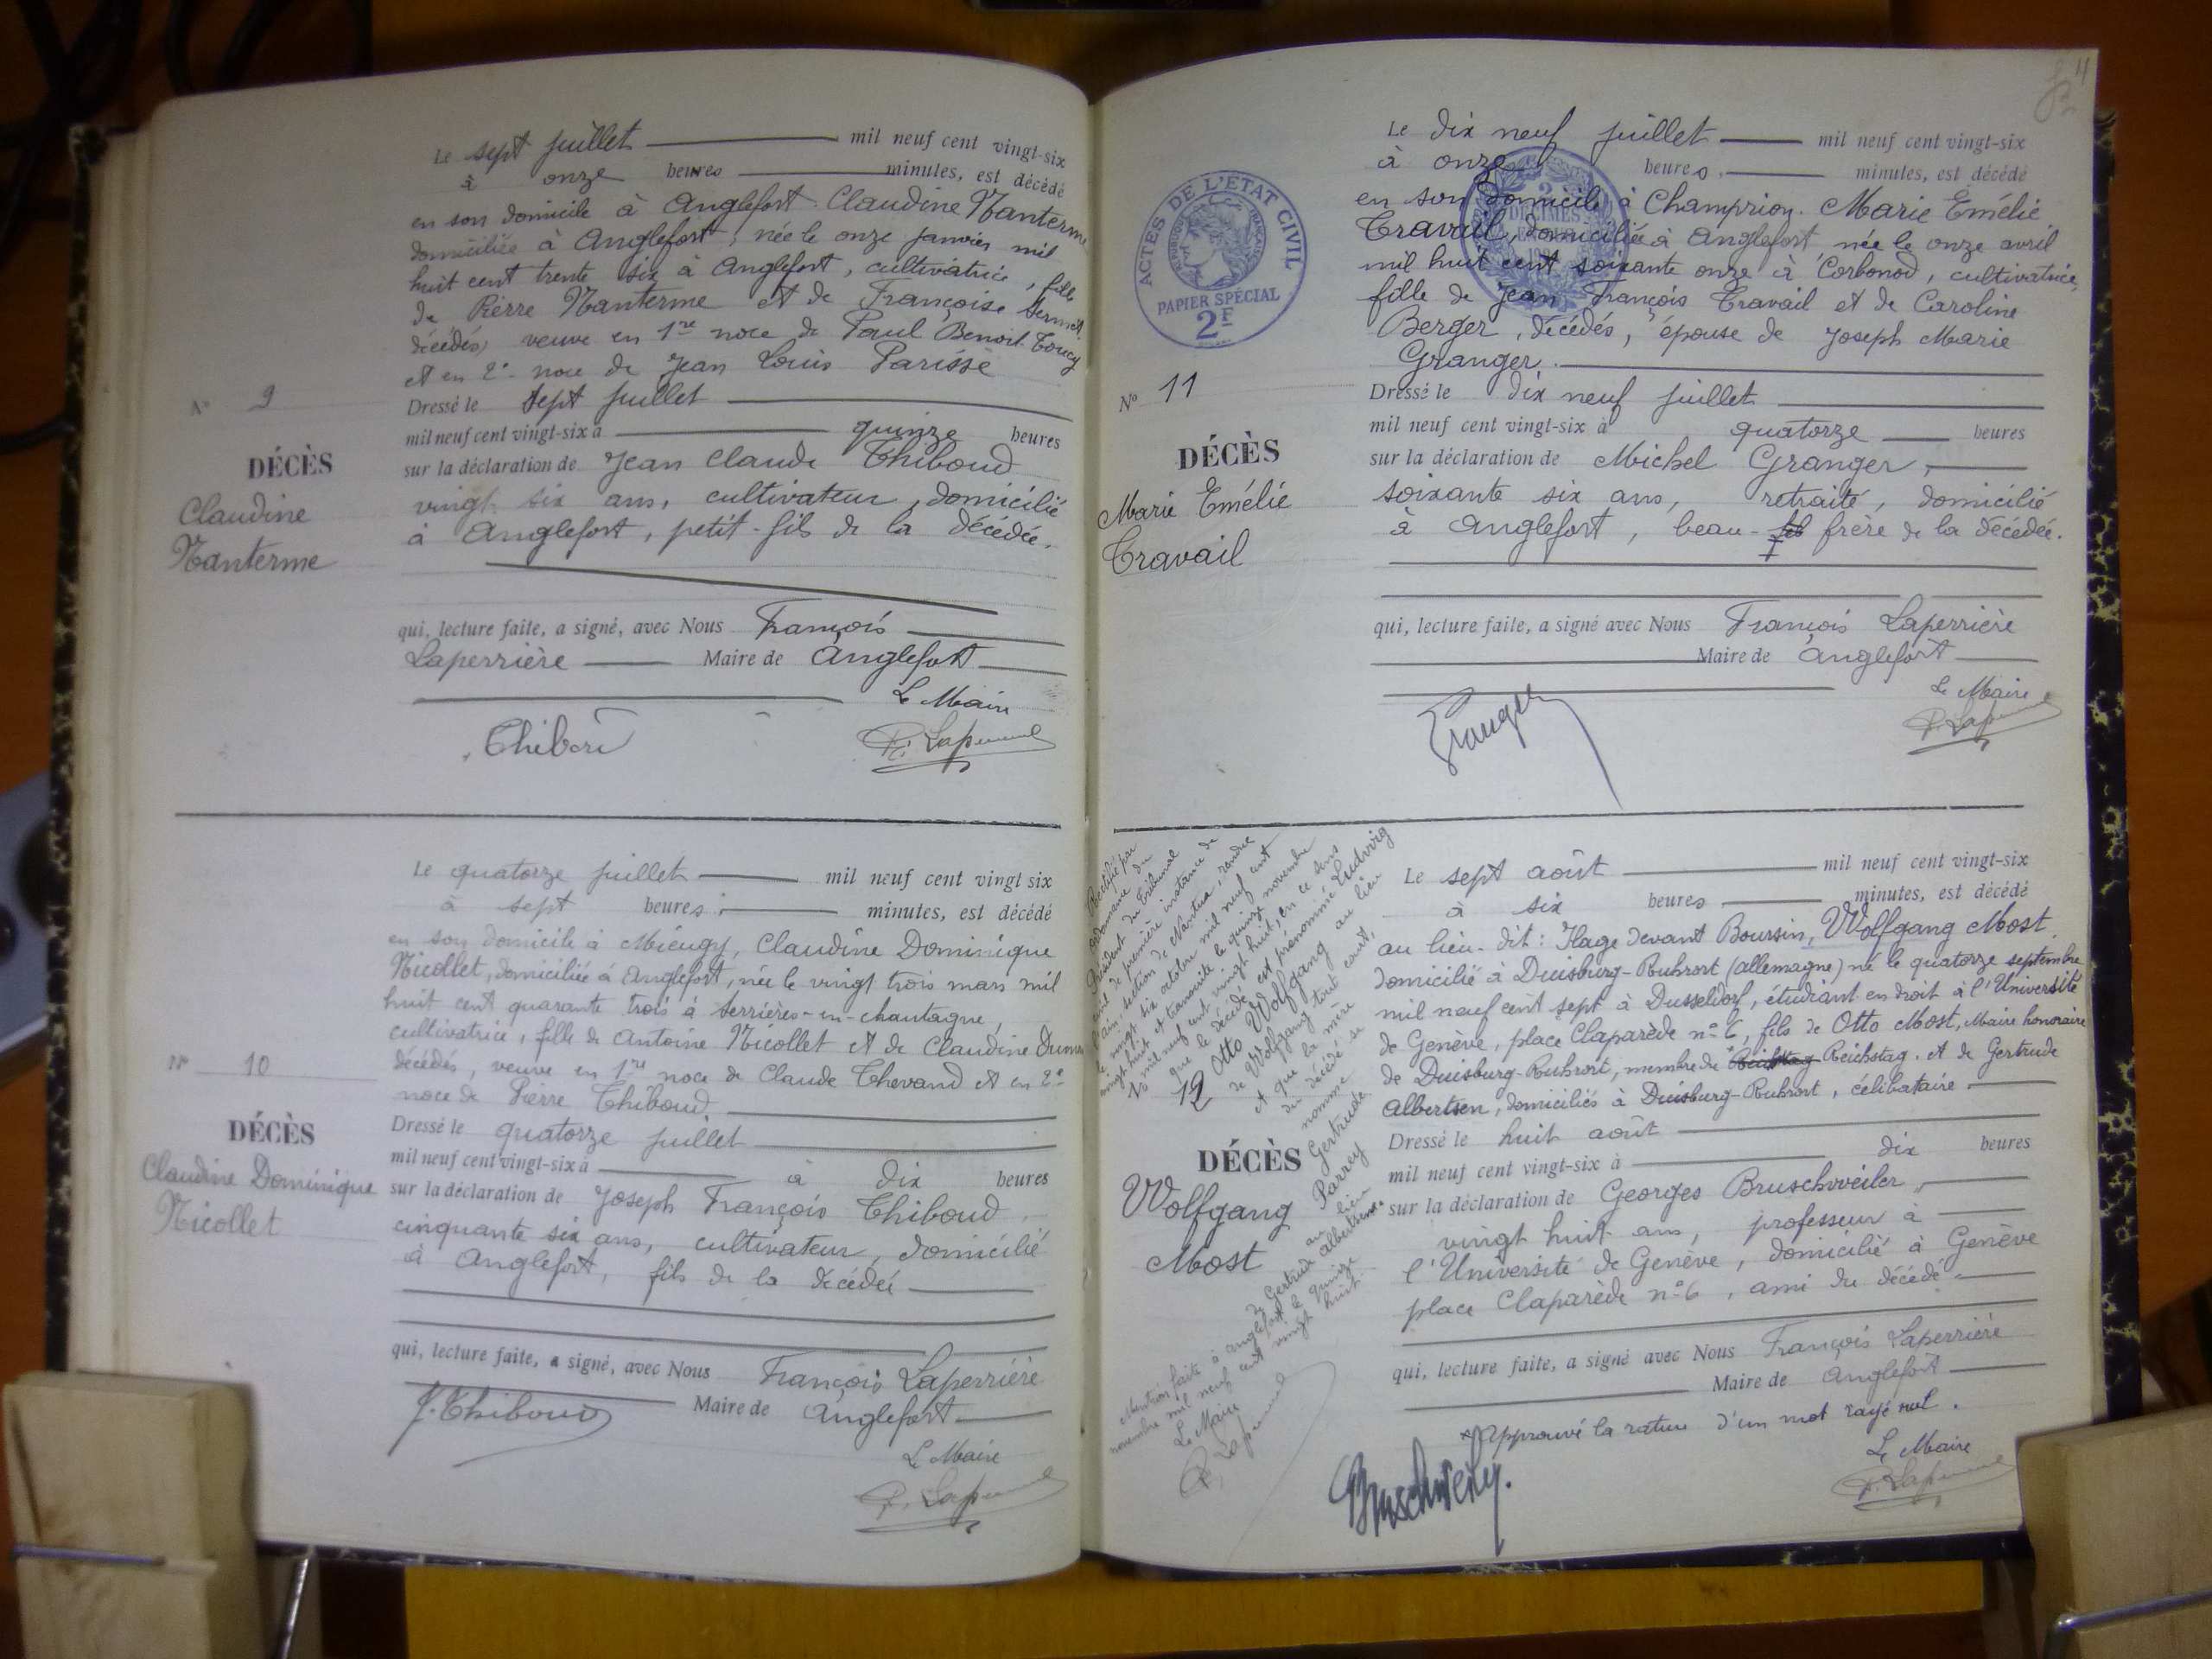 Le sept juillet mil neuf cent vingt-six
à onze heures minutes, est décédé
en son domicile à Anglefort Claudine Nanterme
domiciliée à Anglefort, née le onze janvier mil
huit cent trente six à Anglefort, cultivatrice, fille
de Pierre Nanterme et de Françoise
décédés, veuve en 1re noce de Paul Benoit Toucy
et en 2e noce de Jean Louis Parisse
Dressé le sept juillet
mil neuf cent vingt-six à quinze heures
sur la déclaration de Jean Claude Thiboud
vingt six ans, cultivateur, domicilié
à Anglefort, petit-fils de la décédée.
qui, lecture faite, a signé, avec Nous François
Laperrière Maire de Anglefort
Le Maire
N° 9
DÉCÈS
Claudine
Nanterme
Le quatorze juillet mil neuf cent vingt six
à sept heures minutes, est décédé
en son domicile à Mieugy, Claudine Dominique
Nicollet, domiciliée à Anglefort, née le vingt trois mars mil
huit cent quarante trois à Serrières-en-chautagne,
cultivatrice, fille de Antoine Nicollet et de Claudine
décédés, veuve en 1re noce de Claude Thevand et en 2e
noce de Pierre Thiboud.
Dressé le quatorze juillet
mil neuf cent vingt-six à à dix heures
sur la déclaration de Joseph François Thiboud,
cinquante six ans, cultivateur, domicilié
à Anglefort, fils de la décédée
qui, lecture faite, a signé, avec Nous François Laperrière
Maire de Anglefort
J. Thiboud
Le Maire
N° 10
DÉCÈS
Claudine Dominique
Nicollet
4
ACTES DE L'ETAT CIVIL
PAPIER SPÉCIAL
2F
Le dix neuf juillet mil neuf cent vingt-six
à onze heures minutes, est décédé
en son domicile à Champrion. Marie Emélie
Travail, domiciliée à Anglefort, née le onze avril
mil huit cent soixante onze à Corbonod, cultivatrice,
fille de Jean François Travail et de Caroline
Berger, décédés, épouse de Joseph Marie
Granger.
Dressé le dix neuf juillet
mil neuf cent vingt-six à quatorze heures
sur la déclaration de Michel Granger,
soixante six ans, retraité, domicilié
à Anglefort, beau-frère de la décédée.
qui, lecture faite, a signé avec Nous François Laperrière
Maire de Anglefort
Le Maire
Granger
N° 11
DÉCÈS
Marie Emélie
Travail
Le sept août mil neuf cent vingt-six
à six heures minutes, est décédé
au lieu-dit: Flage devant Boursin, Wolfgang Most,
domicilié à Duisburg-Ruhrort (allemagne) né le quatorze septembre
mil neuf cent sept à Dusseldorf, étudiant en droit à l'Université
de Genève, place Claparède n° 6, fils de Otto Most, Maire honoraire
de Duisburg-Ruhrort, membre du Reichstag Reichstag. et de Gertrude
Albertsen, domiciliés à Duisburg-Ruhrort, célibataire
Dressé le huit août
mil neuf cent vingt-six à dix heures
sur la déclaration de Georges Bruschweiler,
vingt huit ans, professeur à
l'Université de Genève, domicilié à Genève
place Claparède n° 6, ami du décédé.
qui, lecture faite, a signé avec Nous François Laperrière
Maire de Anglefort
Approuvé la rature d'un mot rayé nul.
Le Maire
Rectifié par
ordonnance du
Président du Tribunal
civil de première instance de
l'Ain, section de Nantua, rendue
le vingt six octobre mil neuf cent
vingt huit et transcrite le quinze novembre
mil neuf cent vingt huit, en ce sens
que le décédé est prénommé Ludwig
Otto Wolfgang au lieu
de Wolfgang tout court,
et que la mère
du décédé se
nomme
Gertrude
Parrey
au lieu
de Gertrude Albertsen.
Mention faite à Anglefort le quinze
novembre mil neuf cent vingt huit.
Le Maire
N° 12
DÉCÈS
Wolfgang
Most